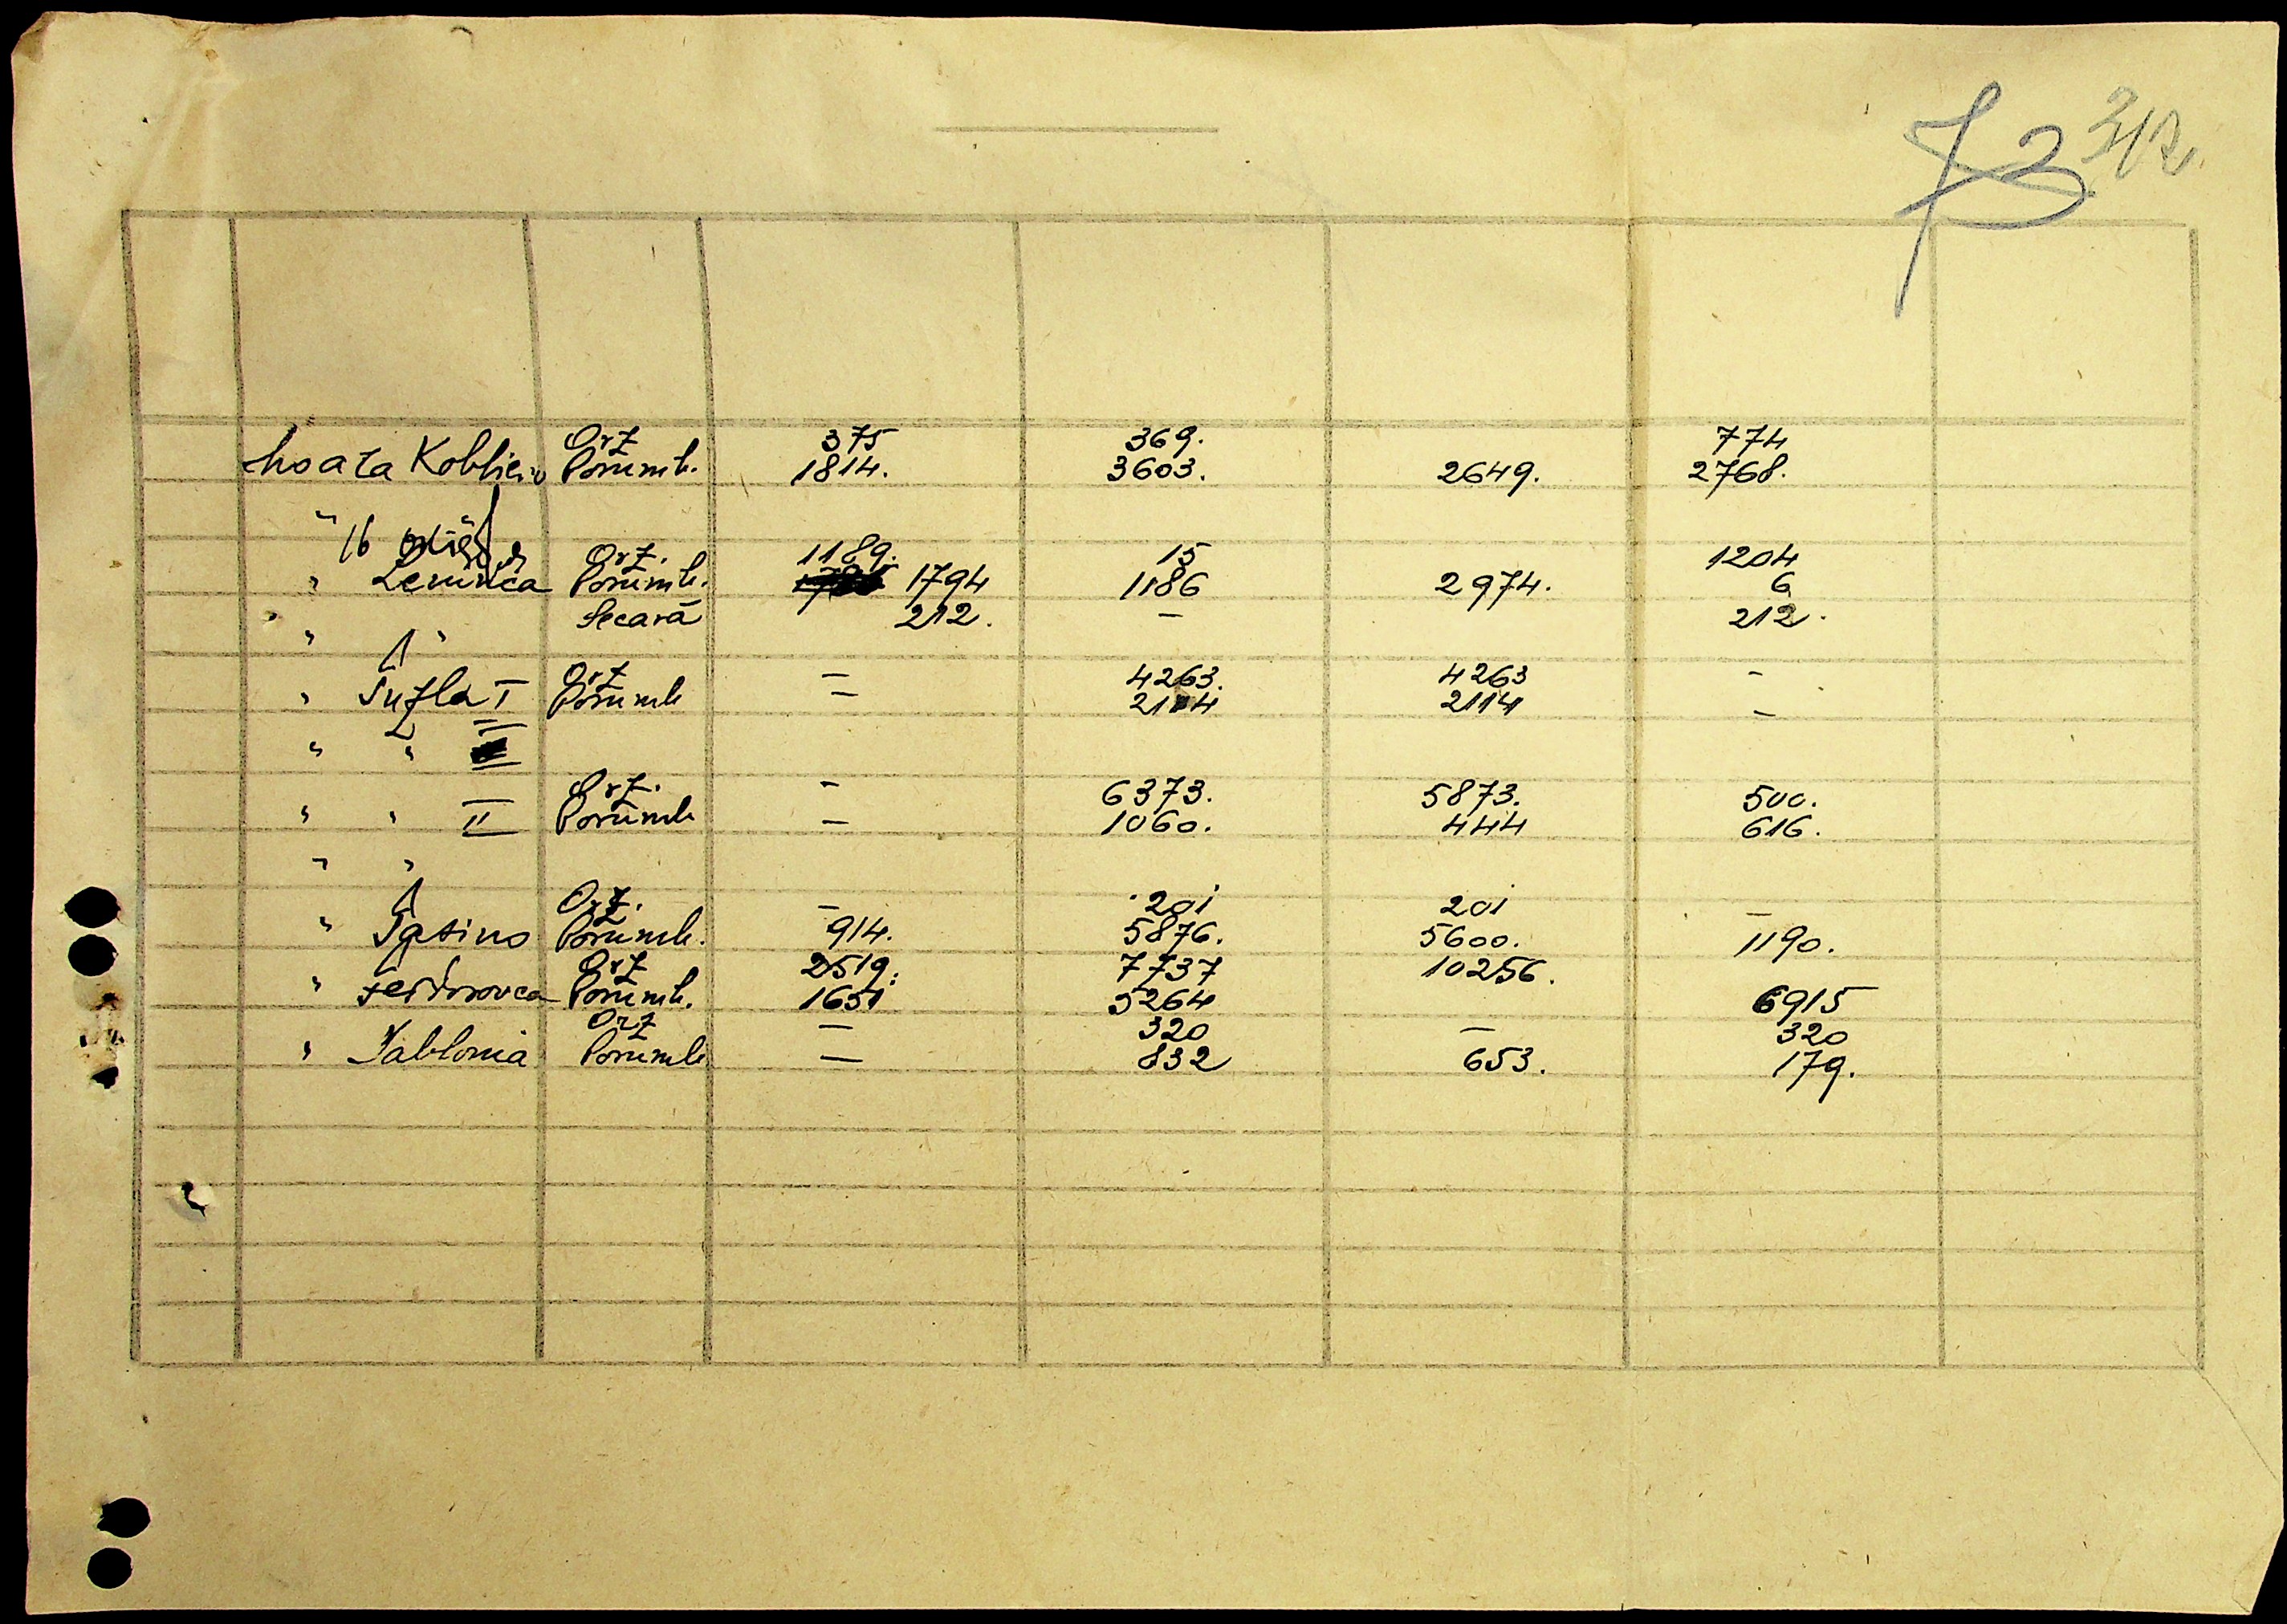 73 312
Moara Koblievo Orz 375 369. 774
Porumb. 1814. 3603. 2649. 2768.
"
" Leninca Orz. 1189. 15 1204
Porumb. 1794 1186 2974. 6
Secară 212. — 212.
" "
" Sufla I Orz — 4263. 4263 —
Porumb — 2114 2114 —
" "
" " II Orz. — 6373. 5873. 500.
Porumb — 1060. 444 616.
" "
" Tatino Orz. — 201 201 —
Porumb. 914. 5876. 5600. 1190.
" Feidorovca Orz 2519. 7737 10256.
Porumb. 1651 5264 6915
" Iablonia Orz — 320 — 320
Porumb — 832 653. 179.